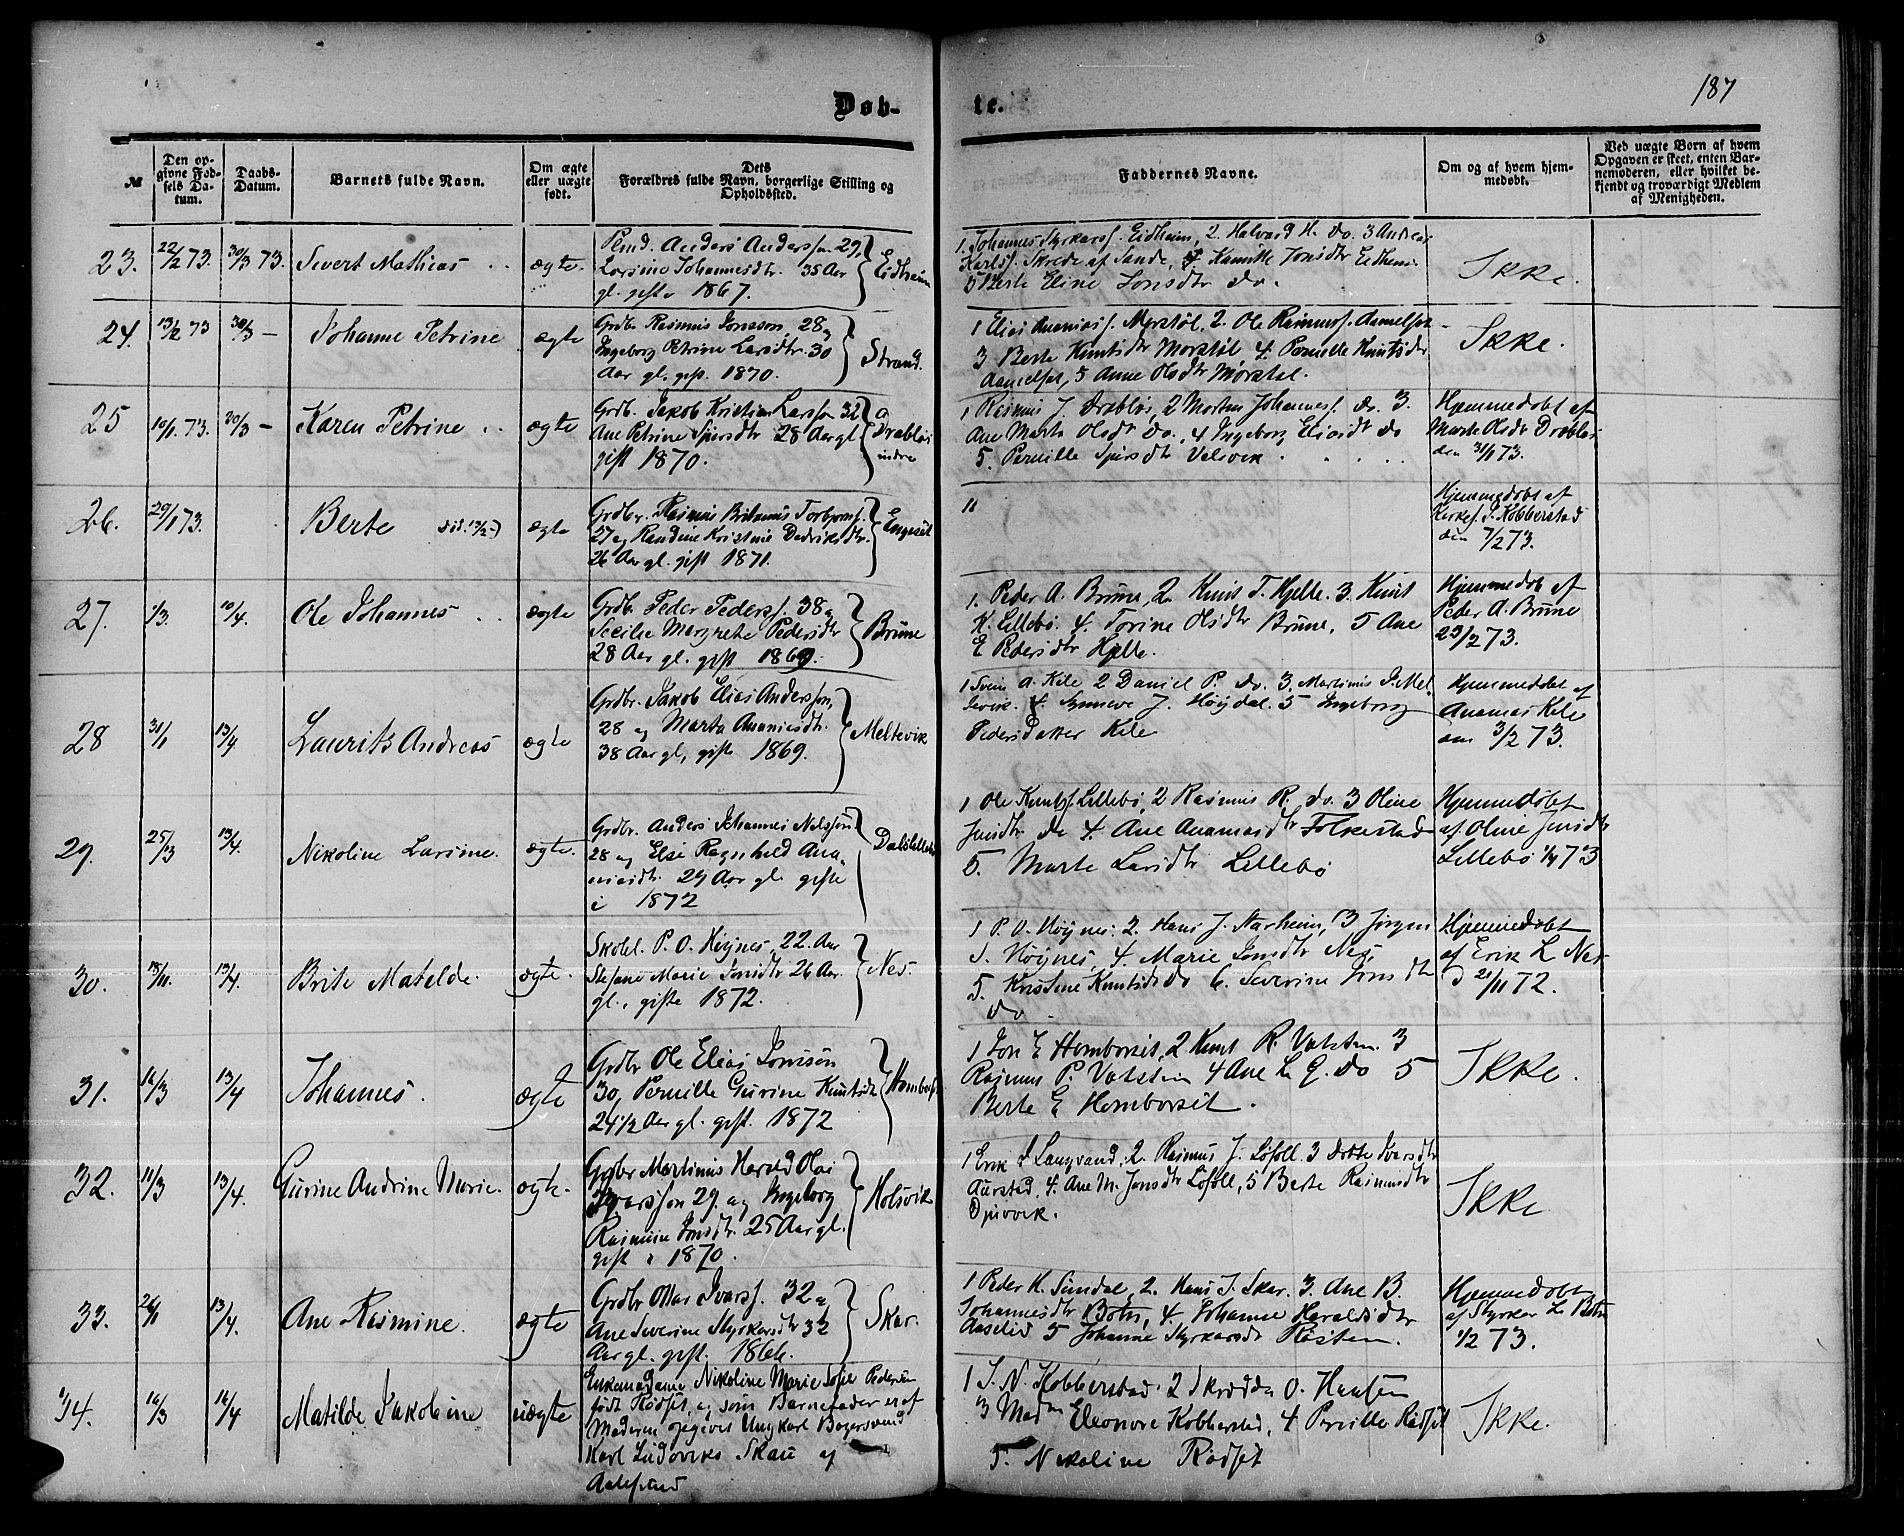 187
Døb-
te.
№
Den op-
givne Fød-
sels Da-
tum.
Daabs-
Datum.
Barnets fulde Navn.
Om ægte
eller uægte
født.
Dets
Forældres fulde Navn, borgerlige Stilling og
Opholdssted.
Faddernes Navne.
Om og af hvem hjem-
medøbt.
Ved uægte Børn af hvem
Opgaven er skeet, enten Bar-
nemoderen, eller hvilket be-
kjendt og troværdigt Medlem
af Menigheden.
23. 22/2 73. 30/3 73. Sivert Mathias . . ægte.
Anders Anderss. 29,
Larsine Johannesdtr. 35 Aar
gl. gifte 1867.
Eidheim
1. Johannes Styrkarss. Eidheim, 2. Halvard H. do. 3 Andreas
Karls. Skrede af Sande, 4 Jonsdtr Eidheim
5 Berte Eline Jonsdtr do.
Ikke.
24. 13/2 73 30/3 — Johanne Petrine ægte
Grdbr. Rasmus Jonsson, 28 og
Ingeborg Petrine Larsdtr. 30
Aar gl. gift. 1870.
Strand.
1 Elias Ananias. 2. Ole Rasmuss. Aamelfot
3 Berte Knutsdtr Morstøl 4. Pernille Knutsdtr
Aamelfot, 5 Anne Olsdtr Mørstøl.
Ikke.
25 10/1. 73. 30/3 — Karen Petrine . . ægte
Grdb. Jakob Kristian Larsson 32
Ane Petrine Spirsdtr 28 Aar gl
gift 1870.
Drabløs
indre
1 Rasmus J. Drabløs, 2 Morten Johanness. do. 3.
Ane Marta Olsdtr do., 4 Ingeborg Eliasdtr do
5. Pernille Spirsdtr Velsvik . . . . .
Hjemmedøbt af
Marte Olsdtr Drabløs
den 31/1 73.
26. 29/1 73. Berte død. 13/2 ægte
Grdbr. Rasmus Britanus Torbjørns.
27 og Randine Kristine Dedriksdtr.
26 Aar gl. gift 1871.
Engeset
11
Hjemmedøbt af
Kirkes. I. Kobberstad
den 7/2 73.
27. 1/3. 10/4. Ole Johannes . . ægte
Grdb. Peder Peders. 38 og
Secilie Margrete Pedersdtr
28 Aar gl. gift 1869.
Brune
1. Peder A. Brune, 2. Knut T. Hjelle. 3. Knut
K. Lillebø. 4. Torine Olsdtr Brune, 5 Ane
E Pedersdtr Hjelle.
Hjemmedøb af
Peder A. Brune
23/2 73.
28 31/1 13/4 Laurits Andreas ægte
Grdbr. Jakob Elias Andersson,
28 og Marta Ananiasdtr.
38 Aar gl, gifte 1869.
Meltevik
1 Svein A. Kile 2 Daniel P. do. 3. Martinus J. Mel
tevik. 4. Synneve J. Høydal. 5 Ingeborg
Pedersdatter Kile
Hjemmedøbt af
Ananias Kile
den 3/2 73.
29. 25/3 13/4. Nikoline Larsine. ægte.
Grdbr. Anders Johannes Nilsson
28 og Else Ragnhild Ana-
niasdtr. 29 Aar gl. gifte
i 1872
Dalslillebø
1 Ole Knuts. Lillebø, 2 Rasmus R. do. 3 Oline
Jensdtr do 4. Ane Ananiasdtr Folkestad
5. Marte Larsdtr Lillebø
Hjemmedøbt
af Oline Jensdtr
Lillebø 1/4 73
30. 18/11. 13/4. Brite Matelde. ægte.
Skolel. P. O. Høynes, 22. Aar
Stefane Marie Jonsdtr 26 Aar.
gl., gifte 1872.
Nes.
1 P. O. Høynes. 2. Hans J. Aarheim, 3 Jørgen
J. Høynes, 4. Marie Jonsdtr Nes,
5. Kristine Knutsdtr do 6. Severine Jonsdtr
do.
Hjemmedøbt
af Erik L Nes
d 21/11 72.
31. 16/3 13/4 Johannes. ægte
Grdbr Ole Elias Jonsson
30, Pernille Gurine Knutsdtr
24 1/2 Aar gl. gift. 1872
Homborset
1 Jon E Homborset, 2 Knut R. Vatsten. 3
Rasmus P. Vatsten 4 Ane L. Q. do 5
Berte E Homborset.
Ikke.
32. 11/3 13/4. Gurine Andrine Marie. ægte.
Grdbr Martinus Harald Olai
Ivarsson 29. og Ingeborg
Rasmine Jonsdtr. 25 Aar gl.
gift i 1870.
Holsvik
1 Erik I Langvand, 2. Rasmus J. Løfoll 3 Dorte Ivarsdtr
Aurstad, 4. Ane M. Jonsdtr Løfoll, 5 Berte Rasmusdtr
Ikke
33. 26/1 13/4. Ane Rasmine. ægte
Grdbr Ivars. 32 og
Ane Severine Styrkarsdtr 32
Aar gl. gift. 1866.
Skar.
1 Peder H. Sundal, 2. Hans J. Skar. 3. Ane B.
Johannesdtr Botn, 4. Johanne Haraldsdtr
Aaselid 5 Johanne Styrkarsdtr Røsten.
Hjemmedøbt
af Styrkar L. Botn
1/2 73.
34. 16/3 16/4 Matilde Jakobine uægte
Enkemadame Nikoline Marie Sofie Pedersen
født Rødset, og som Barnefader er af
Moderen opgivet Ungkarl Bagersvend
Karl Ludoviks Skau af
Aalesund
1 I. N. Kobberstad. 2 Skrædder O. Hansen
3 Mad. Eleonore Kobberstad, 4 Pernille Rødset
5. Nikoline Rødset
Ikke.